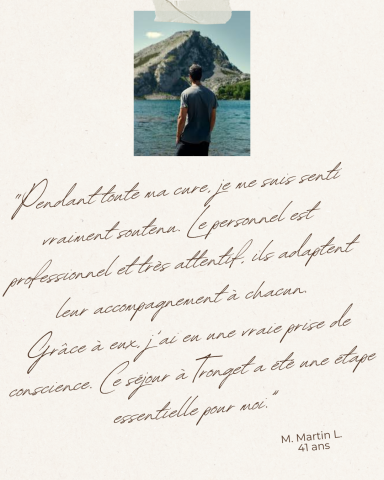 "Pendant toute ma cure, je me suis senti
vraiment soutenu. Le personnel est
professionnel et très attentif, ils adaptent
leur accompagnement à chacun.
Grâce à eux, j'ai eu une vraie prise de
conscience. Ce séjour à Tronget a été une étape
essentielle pour moi."
M. Martin L
41 ans